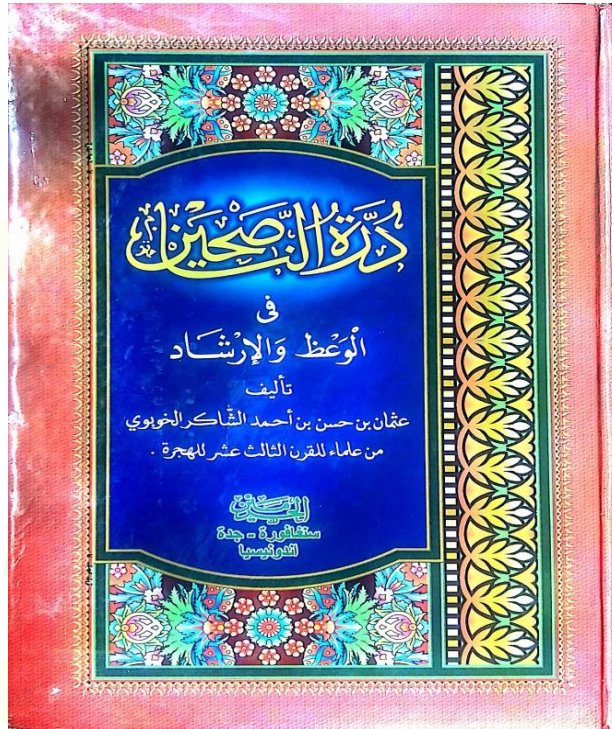 دُرَّةُ النَّاصِحِيْن
فى
الْوَعْظِ وَالإِرْشَاد
تأليف
عثمان بن حسن بن أحمد الشّاكر الخوبوي
من علماء للقرن الثالث عشر للهجرة .
الحرمين
سنغافورة - جدة
اندونيسيا